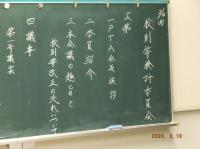 校則等検討委員会
次第
一 PTA会長挨拶
二 本員紹介
三 本会議の趣旨と
校則等改正の流れについて
四 議事
第一号議案
2020.2.18